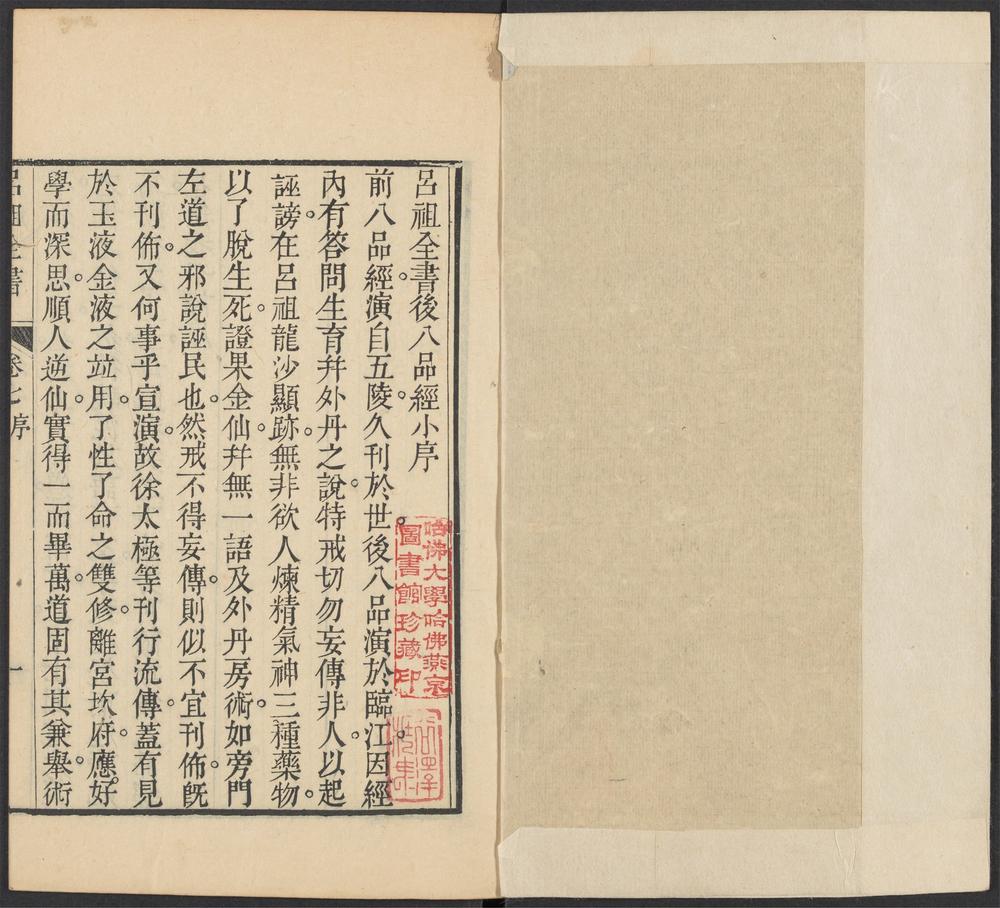 呂祖全書後八品經小序
前八品經。演自五陵。久刊於世。後八品演於臨江。因經
內有答問生育幷外丹之說。特戒切勿妄傳非人。以起
誣謗。在呂祖龍沙顯跡。無非欲人煉精氣神三種藥物。
以了脫生死。證果金仙。幷無一語及外丹房術。如旁門
左道之邪說誣民也。然戒不得妄傳。則似不宜刊佈。旣
不刊佈。又何事乎宣演。故徐太極等刊行流傳。蓋有見
於玉液金液之竝用。了性了命之雙修。離宮坎府。應好
學而深思。順人逆仙。實得一而畢萬。道固有其兼舉。術
呂祖全書
卷七序
一
哈佛大學哈佛燕京
圖書館珍藏印